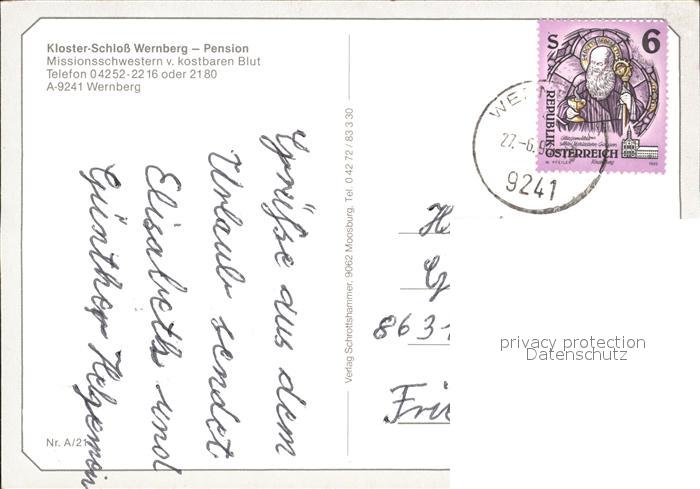 Kloster-Schloß Wernberg – Pension
Missionsschwestern v. kostbaren Blut
Telefon 04252-2216 oder 2180
A-9241 Wernberg
S 6
REPUBLIK
ÖSTERREICH
27.-6.9
9241
Grüße aus dem
Urlaub sendet
Elisabeth und
Günther
Verlag Schrottshammer, 9062 Moosburg, Tel. 0 42 72 / 83 3 30
privacy protection
Datenschutz
Nr. A/21